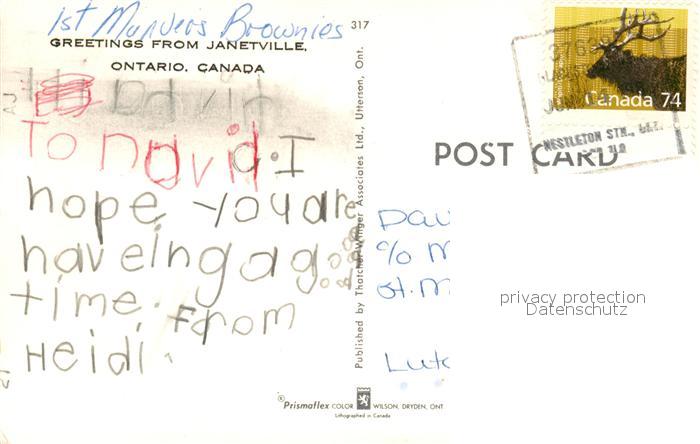 1st Manvers Brownies
317
GREETINGS FROM JANETVILLE,
ONTARIO, CANADA
David
To David. I
hope you are
haveing a good
time. From
Heidi.
Published by Thatcher-Winger Associates Ltd., Utterson, Ont.
Canada 74
NESTLETON STN., ONT.
POST CARD
Dav
c/o M
St. M
Lut
privacy protection
Datenschutz
© Prismaflex COLOR WILSON, DRYDEN, ONT
Lithographed in Canada